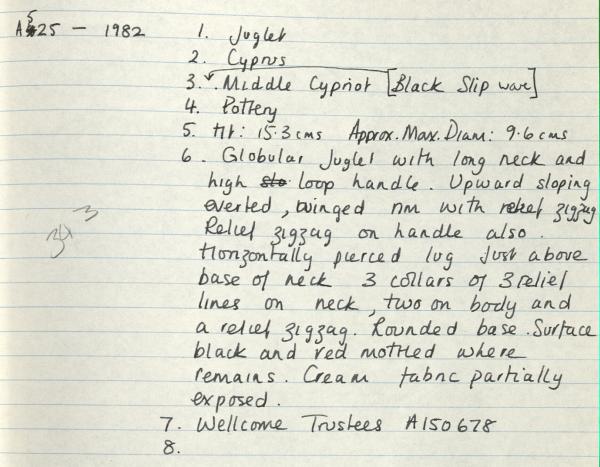 A525 - 1982
1. Juglet
2. Cyprus
3. Middle Cypriot [Black Slip ware]
4. Pottery
5. Ht: 15.3 cms Approx. Max. Diam: 9.6 cms
6. Globular Juglet with long neck and
high loop handle. Upward sloping
everted, winged rim with relief zigzag
Relief zigzag on handle also.
Horizontally pierced lug just above
base of neck 3 collars of 3 relief
lines on neck, two on body and
a relief zigzag. Rounded base. Surface
black and red mottled where
remains. Cream fabric partially
exposed.
7. Wellcome Trustees A150678
8.